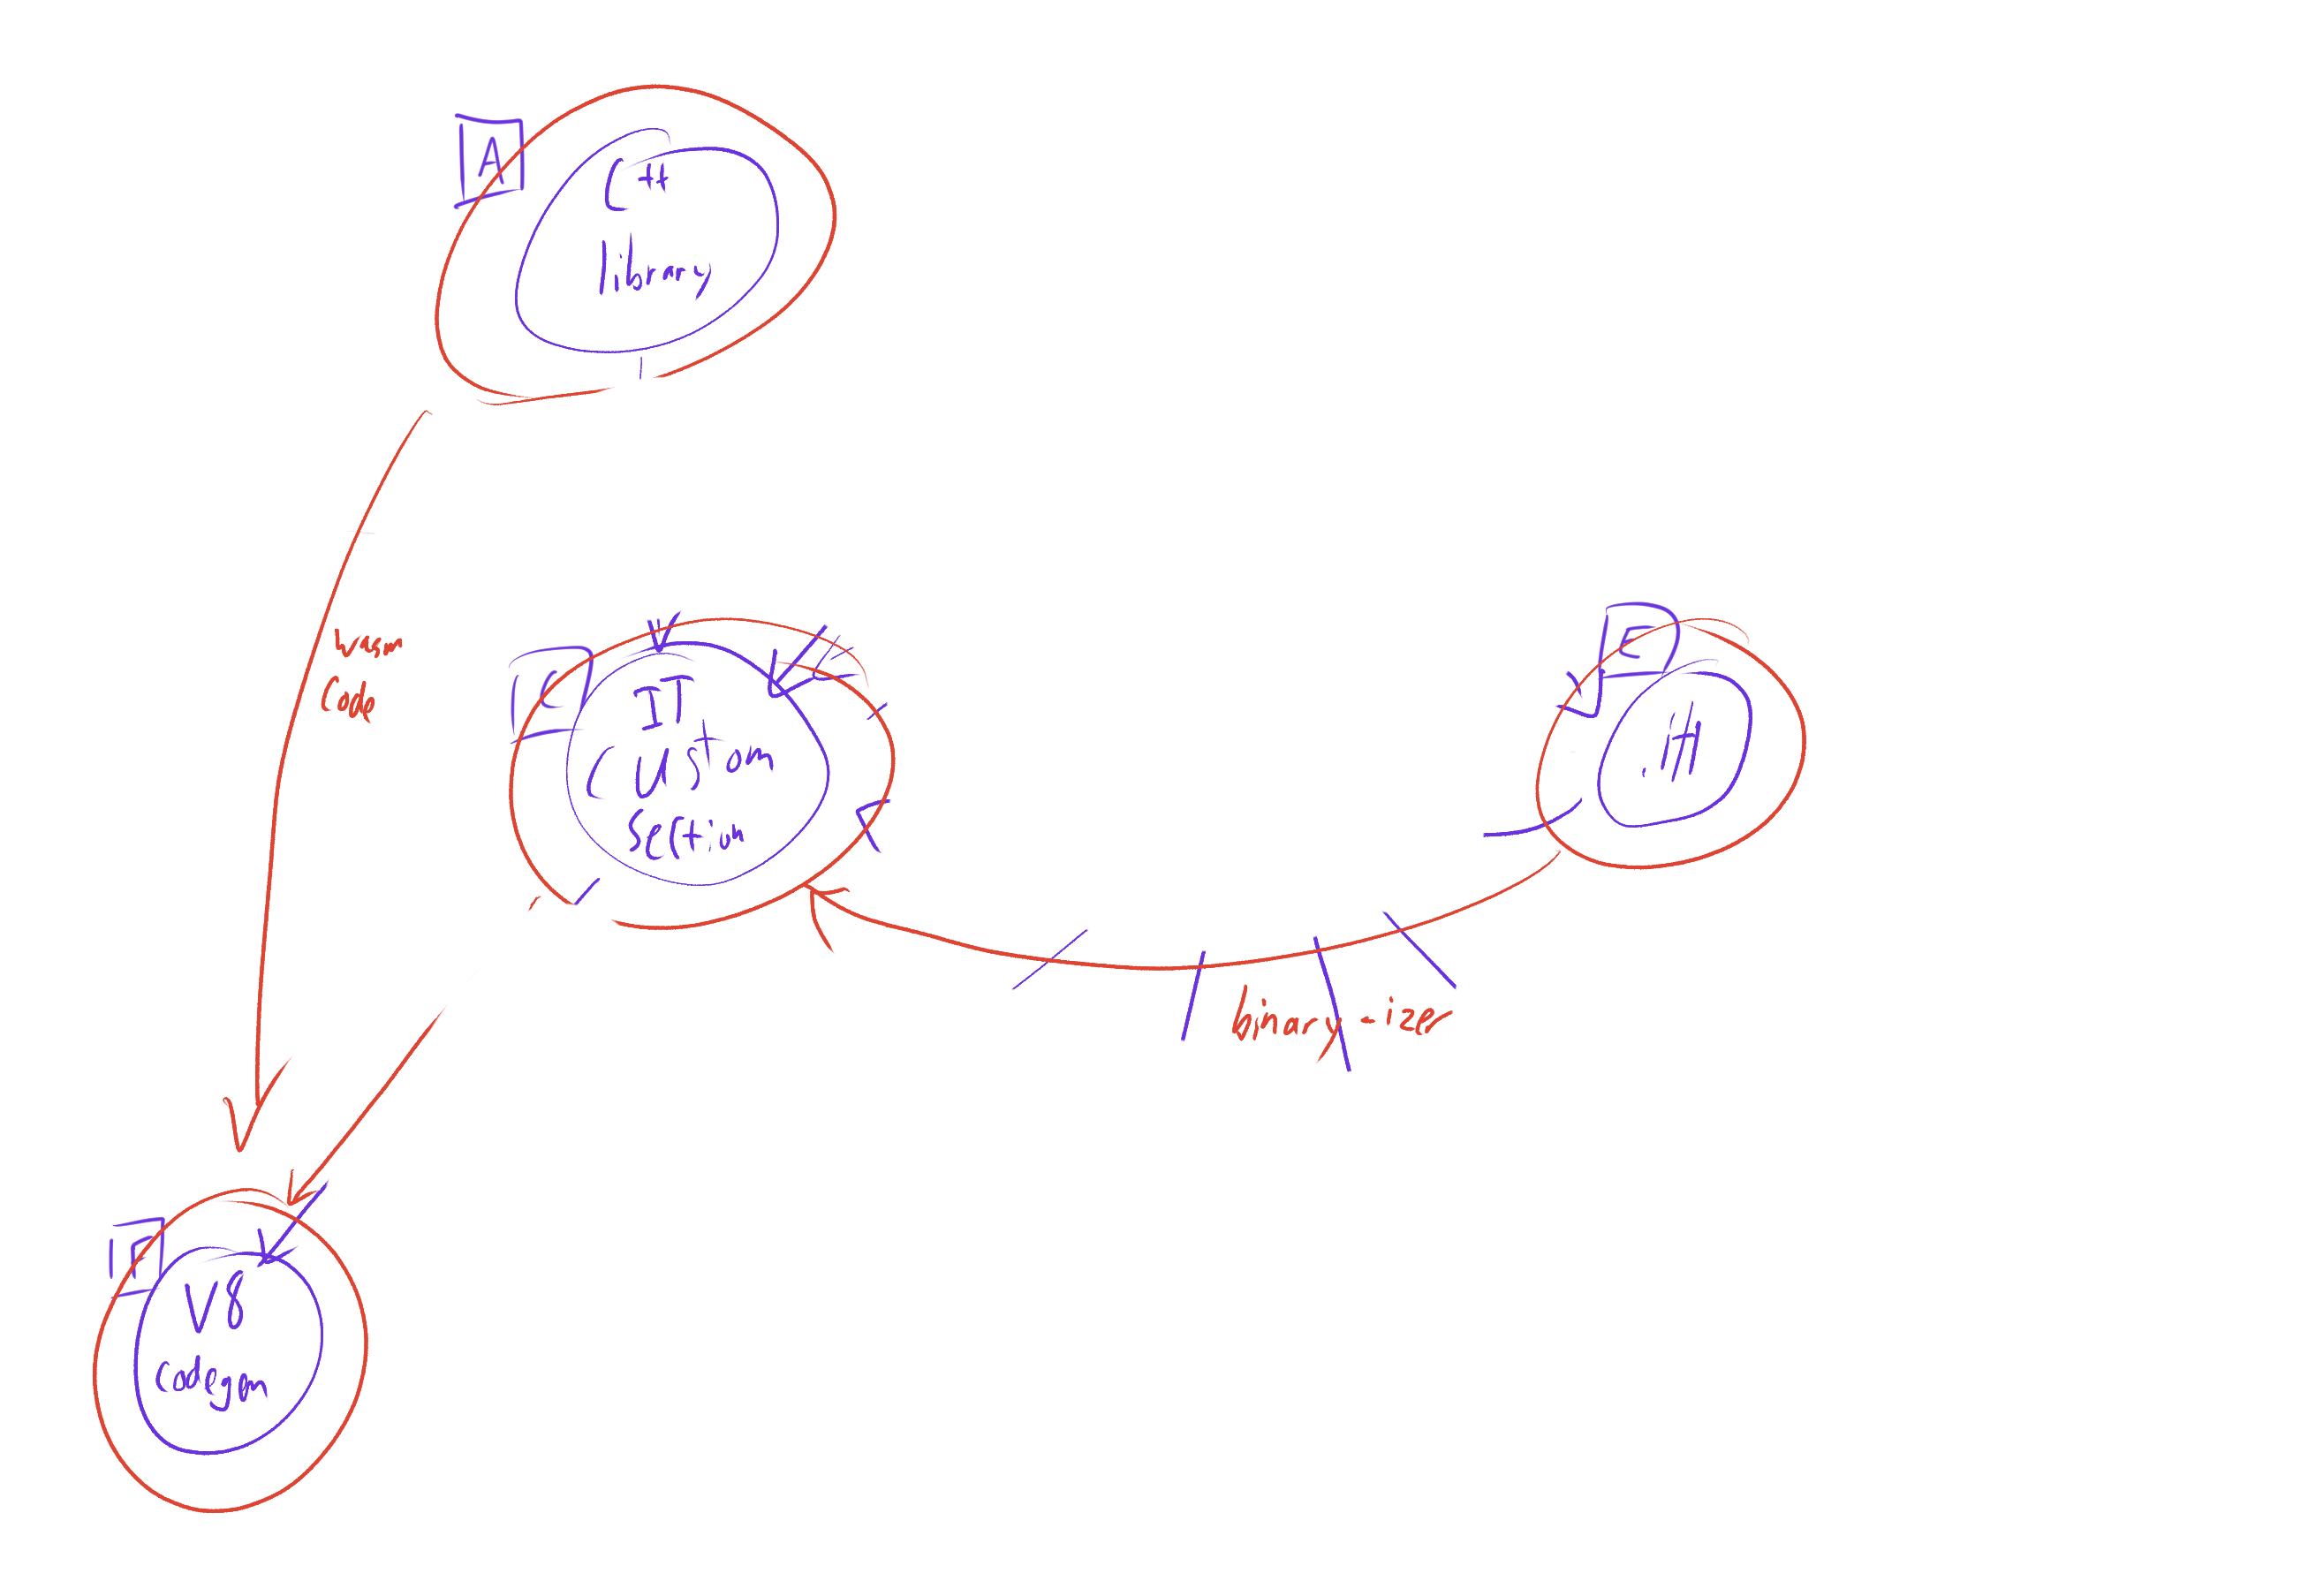 A
C++
library
wasm
code
C
IT
Custom
Section
E
.it
binary-izer
F
V8
codegen